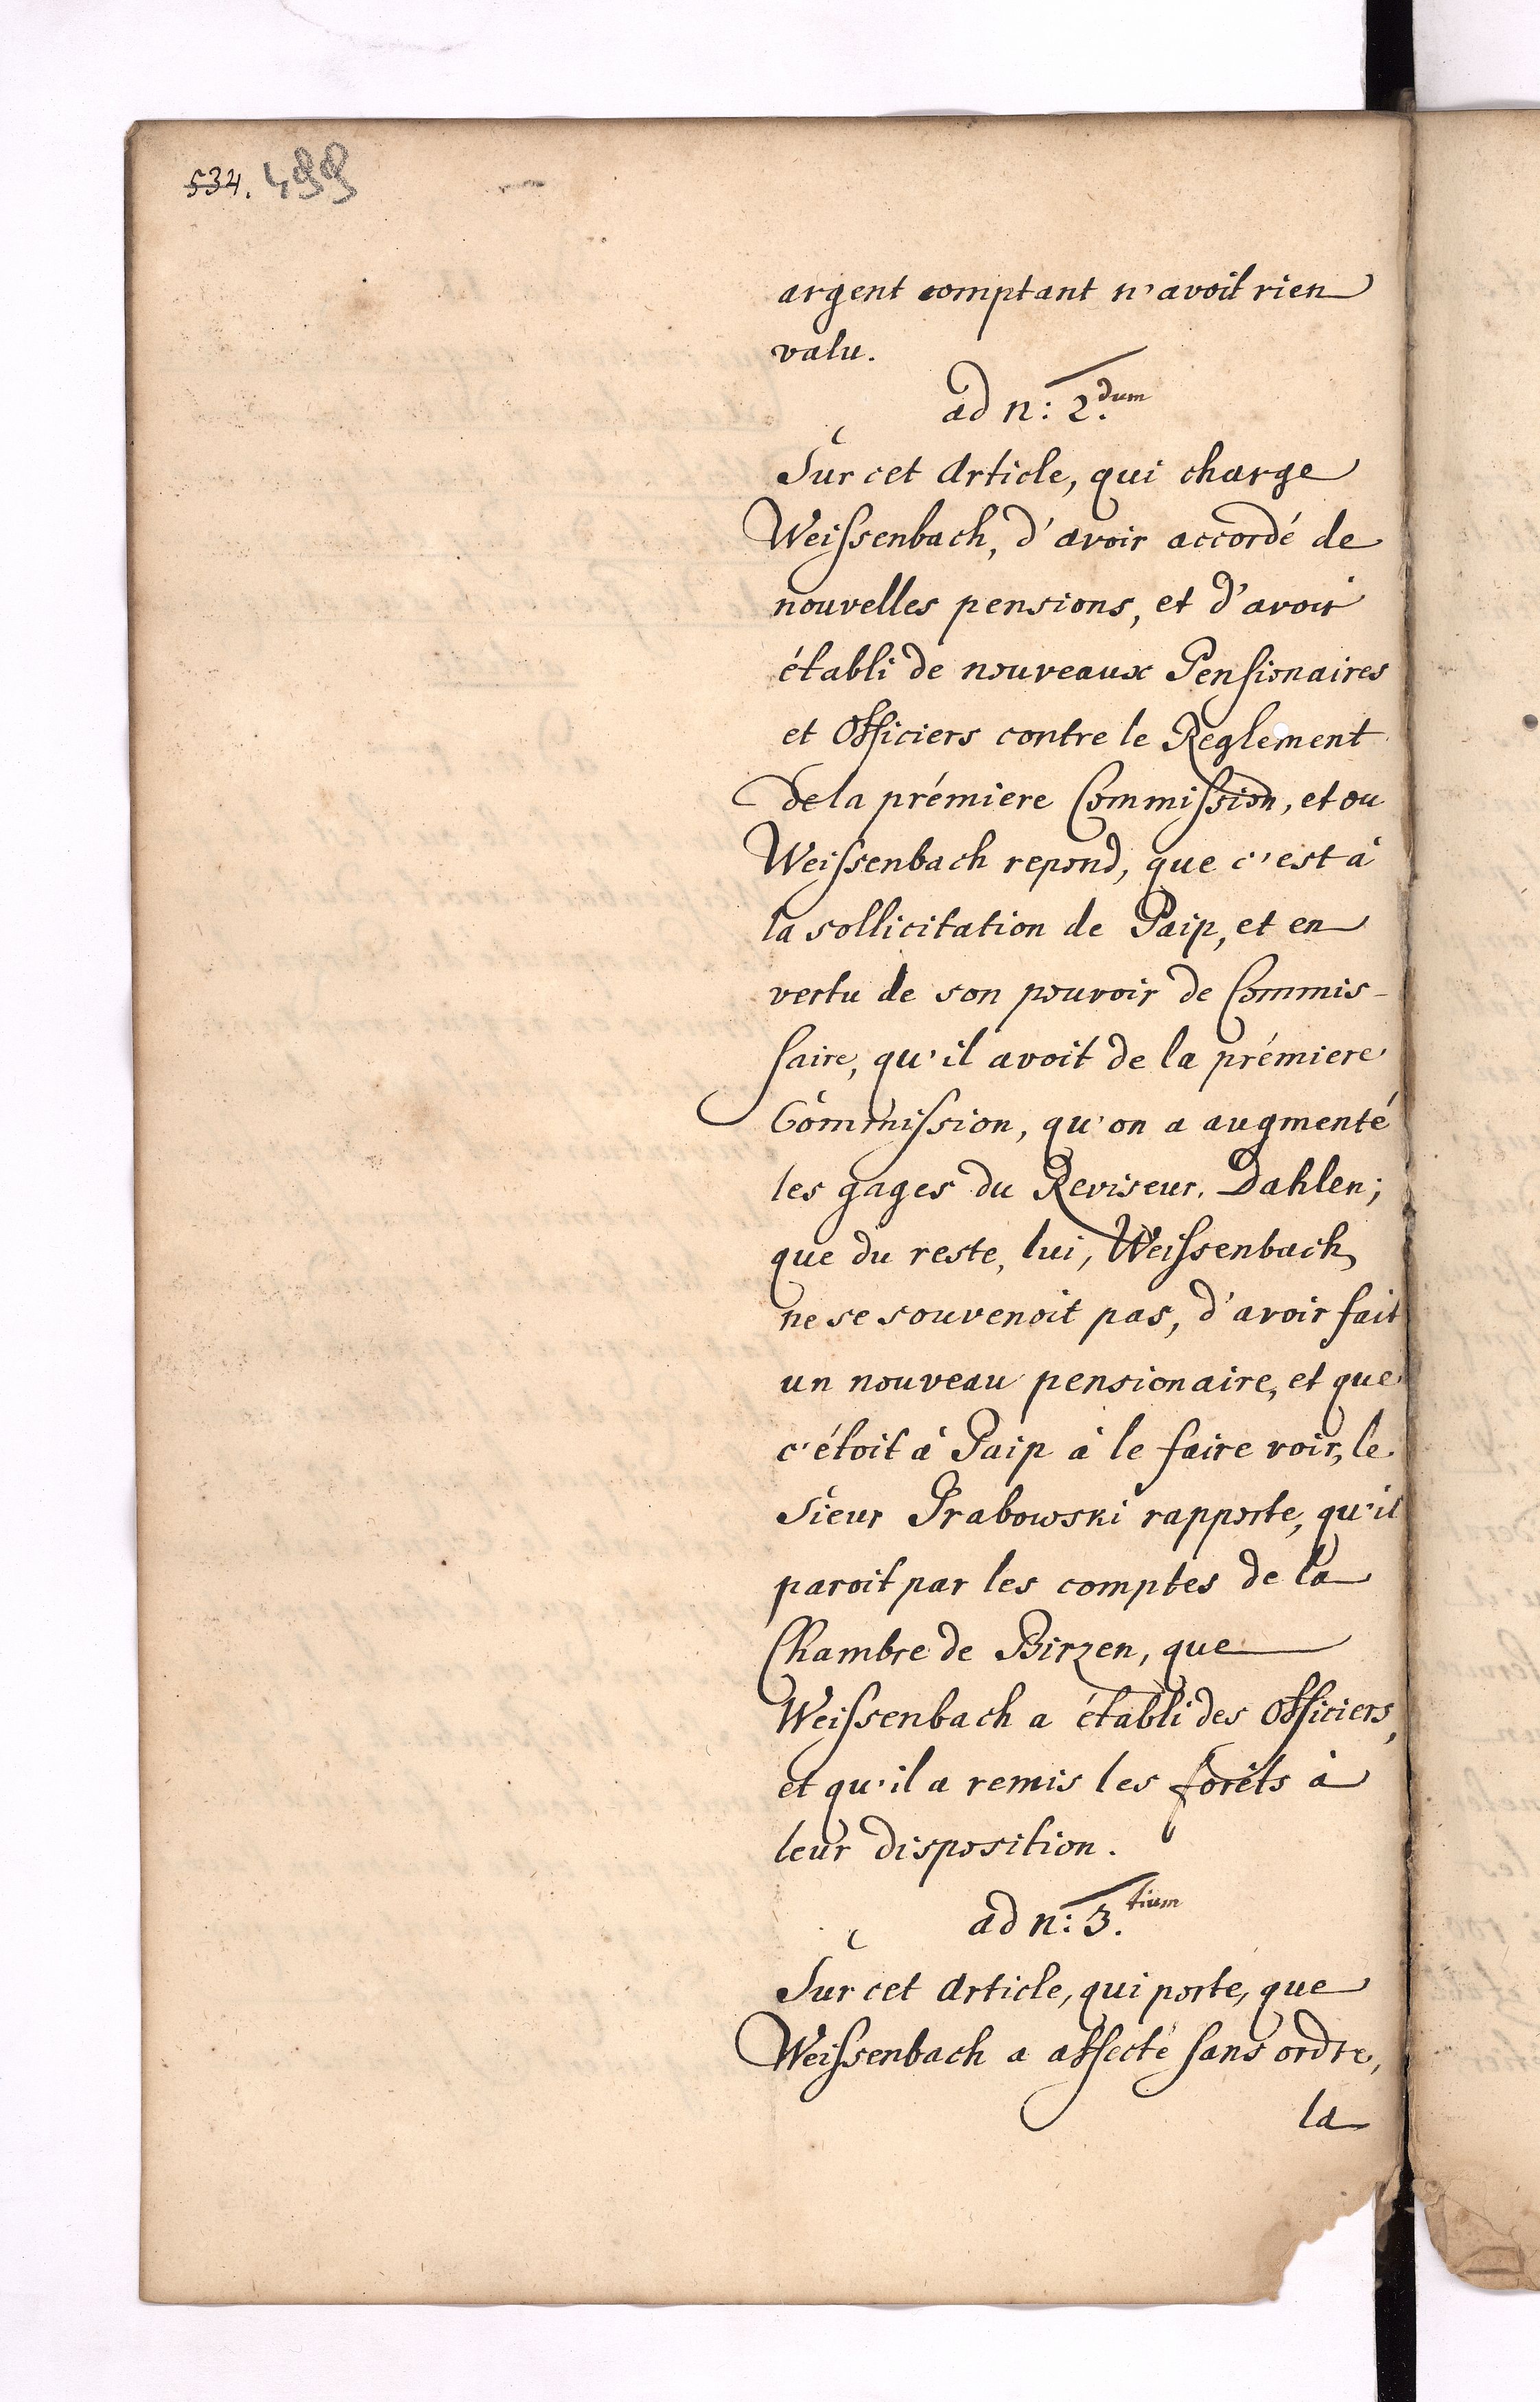 534. 499
argent comptant n'avoit rien
valu.
ad n: 2.dum
Sur cet Article, qui charge
Weissenbach, d'avoir accordé de
nouvelles pensions, et d'avoir
établi de nouveaux Pensionaires
et Officiers contre le Reglement
de la prémiere Commission, et ou
Weissenbach repond, que c'est à
la sollicitation de Paip, et en
vertu de son pouvoir de Commis-
saire, qu'il avoit de la prémiere
Commission, qu'on a augmenté
les gages du Reviseur. Dahlen;
que du reste, lui, Weissenbach
ne se souvenoit pas, d'avoir fait
un nouveau pensionaire, et que
c'étoit à Paip à le faire voir, le
Sieur Grabowski rapporte, qu'il
paroit par les comptes de la
Chambre de Birzen, que
Weissenbach a établi des Officiers,
et qu'il a remis les forêts à
leur disposition.
ad n: 3.tium
Sur cet Article, qui porte, que
Weissenbach a affecté sans ordre,
la